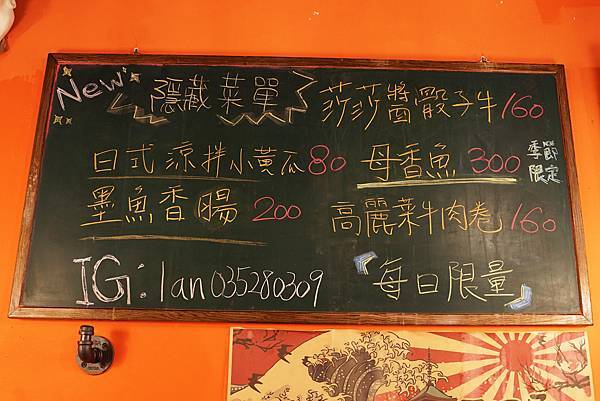 New 隱藏菜單
莎莎醬骰子牛 160
日式涼拌小黃瓜 80
母香魚 300 季節限定
墨魚香腸 200
高麗菜牛肉卷 160
IG: lan035280309
『每日限量』